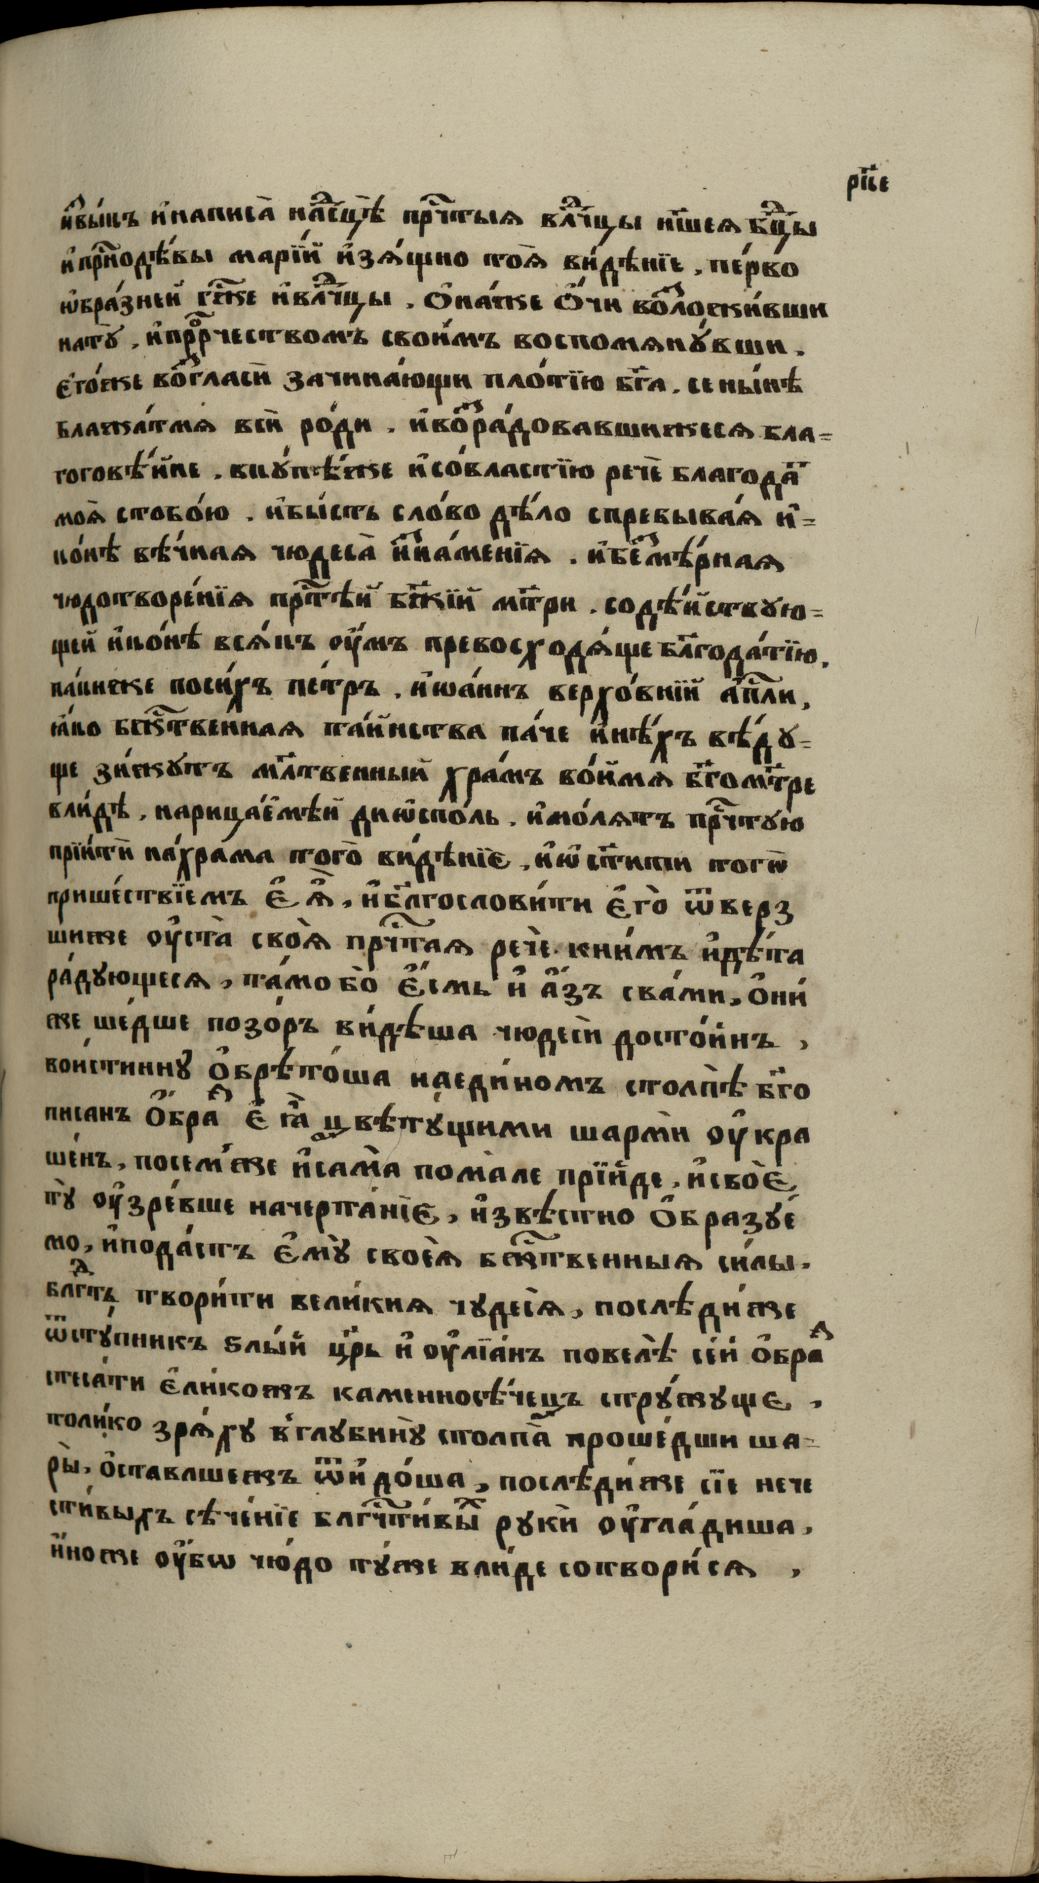 рк҃е
и҆вы́къ и҆написа̀ над̾сцѣ̀ прⷭ҇чтыѧ влⷣчцы нш҃еѧ бцⷣы
и҆прⷭ҇нодѣ́вы марі́й и҆зѧ́щно тоѧ̀ ви́дѣнїе, пе́рво
ѡ҆бра́зней гжⷭ҇е и҆влⷣчцы. ѻ҆на́же ѻ҆́чи возⷧ҇ожи́вши
натꙋ̀, и҆прⷪ҇рчествомъ свои́мъ воспомѧнꙋ́вши.
є҆го́же возⷢ҇ласѝ зачина́ющи пло́тїю бг҃а. се ны́нѣ
блажа́тмѧ всѝ ро́ди. и҆возра́довавшижесѧ бла=
гоговѣ́йне. вкꙋ́пѣже и҆со́властїю речѐ благода́ть
моѧ̀ стобо́ю. и҆бы́сть сло́во дѣ́ло спребыва́ѧ и҆=
ко́нѣ вѣ́чнаѧ чюдеса̀ и҆зна́менїѧ. и҆безмѣ́рнаѧ
чюдотворе́нїѧ прⷭ҇тѣй бж҃їй мт҃ри. содѣ́йствꙋю=
щей и҆ко́нѣ всѧ́къ ᲂу҆́мъ превосходѧ́ще блгⷣода́тїю.
па́киже поси́хъ пе́тръ. и҆ѡа́ннъ верхо́внїй а҆пⷭ҇ли,
ꙗ҆́ко бжⷭ҇твеннаѧ та́инства па́че и҆нѣ́хъ вѣ́дꙋ=
ще зи́ждꙋтъ мл҃твенный хра́мъ во́имѧ бг҃омт҃ре
вли́дѣ, нарица́емѣй дио́споль. и҆мо́лѧтъ прⷭ҇чтꙋю
прїитѝ нахра́ма того̀ ви́дѣнїе, и҆ѡ҆ст҃ити тогѡ̀
прише́ствїемъ є҆ѧ̀, и҆бл҃гослови́ти є҆го̀ ѿверз
шиже ᲂу҆ста̀ своѧ̀ прⷭ҇чтаѧ речѐ. книмъ и҆дѣ́та
ра́дꙋющесѧ, та́мо бо̀ є҆́смь и҆ а҆́зъ сва́ми, ѻ҆ни́
же ше́дше позо́ръ ви́дѣша чюдесѝ досто́инъ,
вои́стиннꙋ ѻ҆брѣто́ша наеди́номъ столпѣ̀ бг҃о
писанъ ѻ҆́браз є҆ѧ̀ цвѣтꙋ́щими шармѝ ᲂу҆кра
ше́нъ, посе́мже и҆сама̀ пома́ле прїи́де, и҆своѐ
тꙋ̀ ᲂу҆зре́вше начерта́нїе, и҆звѣ́стно ѻ҆бразꙋ́е
мо, и҆пода́стъ є҆мꙋ̀ своеѧ̀ бжⷭ҇твенныѧ си́лы.
блгⷣть твори́ти вели́киѧ чꙋдесѧ̀, послѣди́же
ѿстꙋ́пникъ ѕлы́й цр҃ь и҆ ᲂу҆лїа́нъ повелѣ̀ се́й ѻ҆́браз
стеса́ти є҆ли́кожъ каменносѣ́чецъ стрꙋ́жꙋще,
толи́ко зрѧ́хꙋ в̾глꙋбинꙋ̀ столпа̀ проше́дши ша=
ры̀, ѻ҆ставлшежъ ѿидо́ша, послѣди́же сїе нече
сти́выхъ сѣче́нїе блгⷭ҇чти́выѧ рꙋкѝ ᲂу҆гла́диша,
и҆́ноже ᲂу҆́бѡ чю́до тꙋ́же вли́де сотвори́сѧ,